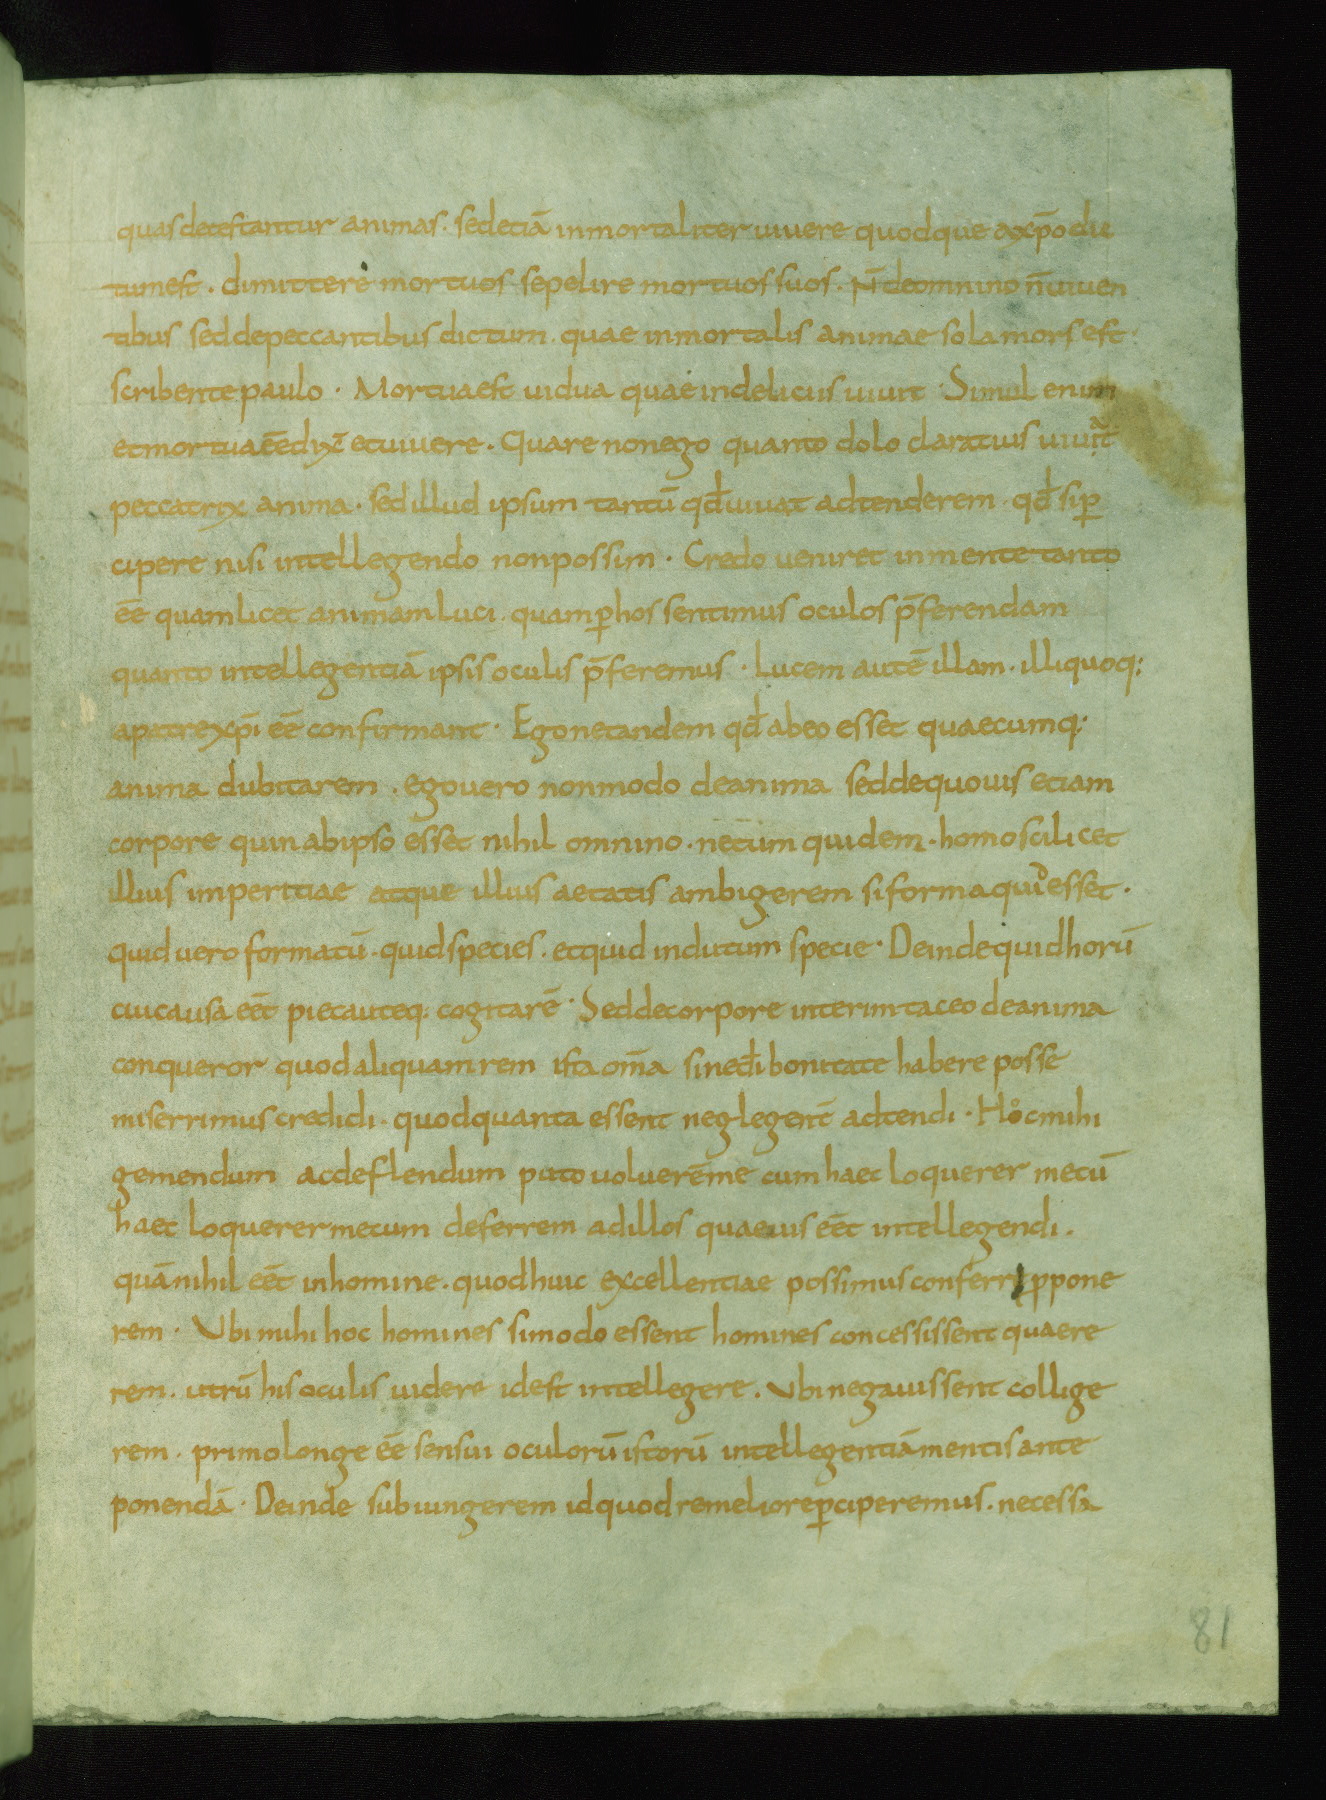 quas detestantur animas. sed etiā inmortaliter uiuere quodque a xp̄o dic
tum est. dimittere mortuos sepelire mortuos suos. N̄ de omnino n̄ uiuen
tibus sed de peccantibus dictum. quae inmortalis animae sola mors est.
scribente paulo. Mortua est uidua quae in deliciis uiuit. Simul enim
et mortua eē dix̄ et uiuere. Quare non ego quanto dolo claratius uiuat
peccatrix anima. sed illud ipsum tantū qđ uiuat adtenderem. qđ si p̄
cipere nisi intellegendo non possim. Credo ueniret in mente tanto
eē quam licet animam luci. quam ꝑ hos sentimus oculos p̄ferendam
quanto intellegentiā ipsis oculis p̄feremus. Lucem autē illam. illi quoq:
a patre xp̄i eē confirmant. Egone tandem qđ ab eo esset quaecumq:
anima dubitarem. ego uero non modo de anima sed de quouis etiam
corpore quin ab ipso esset nihil omnino. ne tum quidem. homo scilicet
illius imperitiae atque illius aetatis ambigerem si forma quid esset.
quid uero formatū. quid species. et quid indutum specie. Deinde quid horū
cui causa eēt pie cauteq: cogitarē. Sed de corpore interim taceo de anima
conqueror quod aliquam rem ista om̄a sine đi bonitate habere posse
miserrimus credidi. quod quanta essent neglegenť adtendi. Hoc mihi
gemendum ac deflendum puto uoluerē me cum haec loquerer mecū
haec loquerer mecum deferrem ad illos quae uis eēt intellegendi.
quā nihil eēt in homine. quod huic excellentiae possimus conferri ꝓpone
rem. Vbi mihi hoc homines si modo essent homines concessissent quaere
rem. utrū his oculis uidere id est intellegere. Vbi negauissent collige
rem. primo longe eē sensui oculorū istorū intellegentiā mentis ante
ponendā. Deinde subiungerem id quod re meliore ꝑciperemus. necessa
81